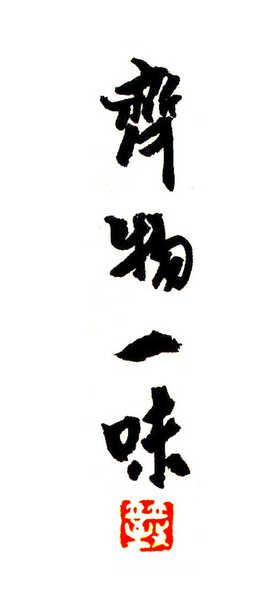 齊物一味